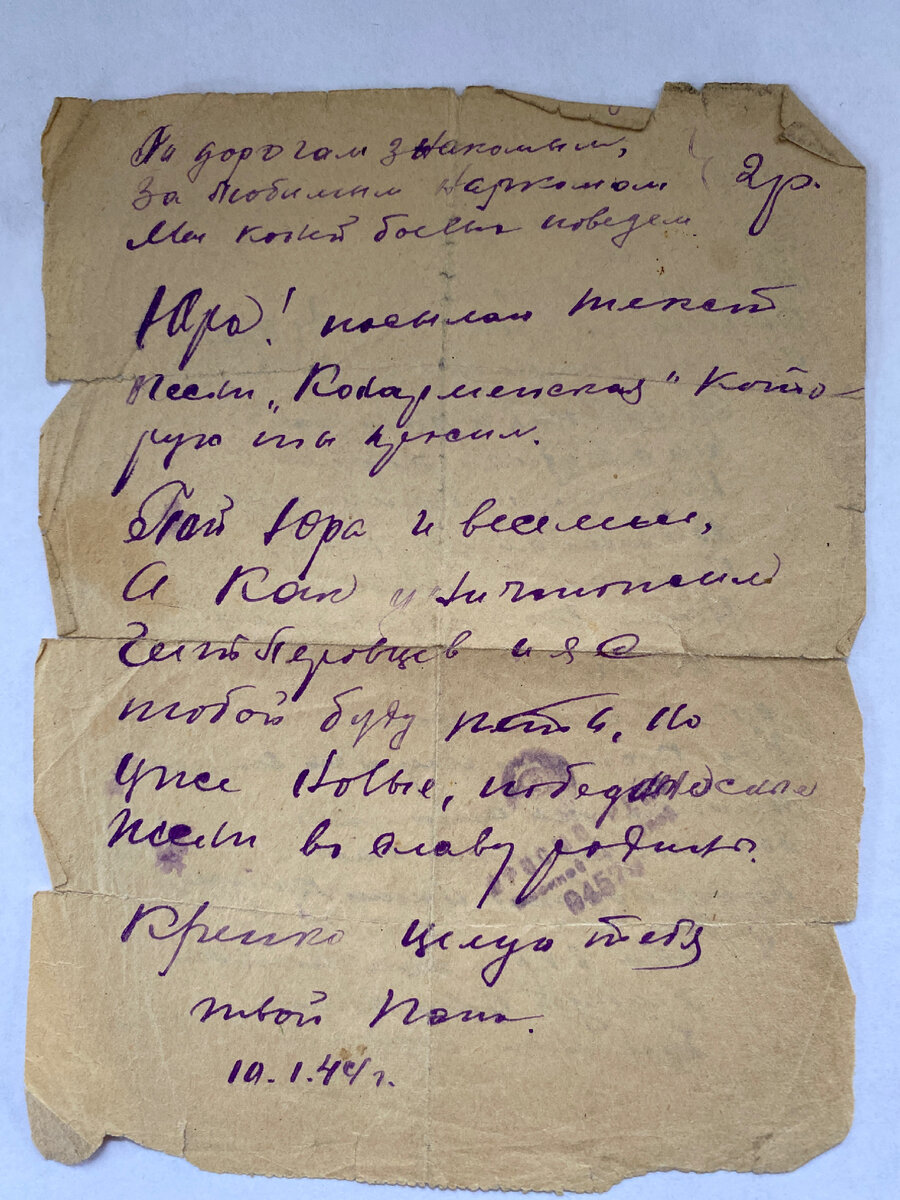 По дорогам знакомым,
За любимым наркомом } 2р.
Мы коней боевых поведем
Юра! посылаю текст
песни „Конармейская" кото-
рую ты просил.
Пой Юра и веселись,
А как уничтожим
Гитлеровцев и я с
тобой буду петь, но
уже новые, победоносные
песни во славу родины.
Крепко целую тебя
твой папа.
10.1.44г.
0457